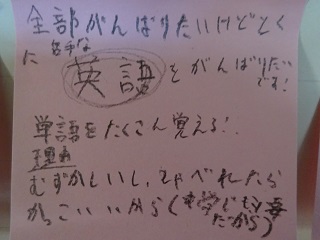 全部がんばりたいけどとく
に苦手な
英語をがんばりたい
です!
単語をたくさん覚える!
理由
むずかしいし、しゃべれたら
かっこいいから(
だから)